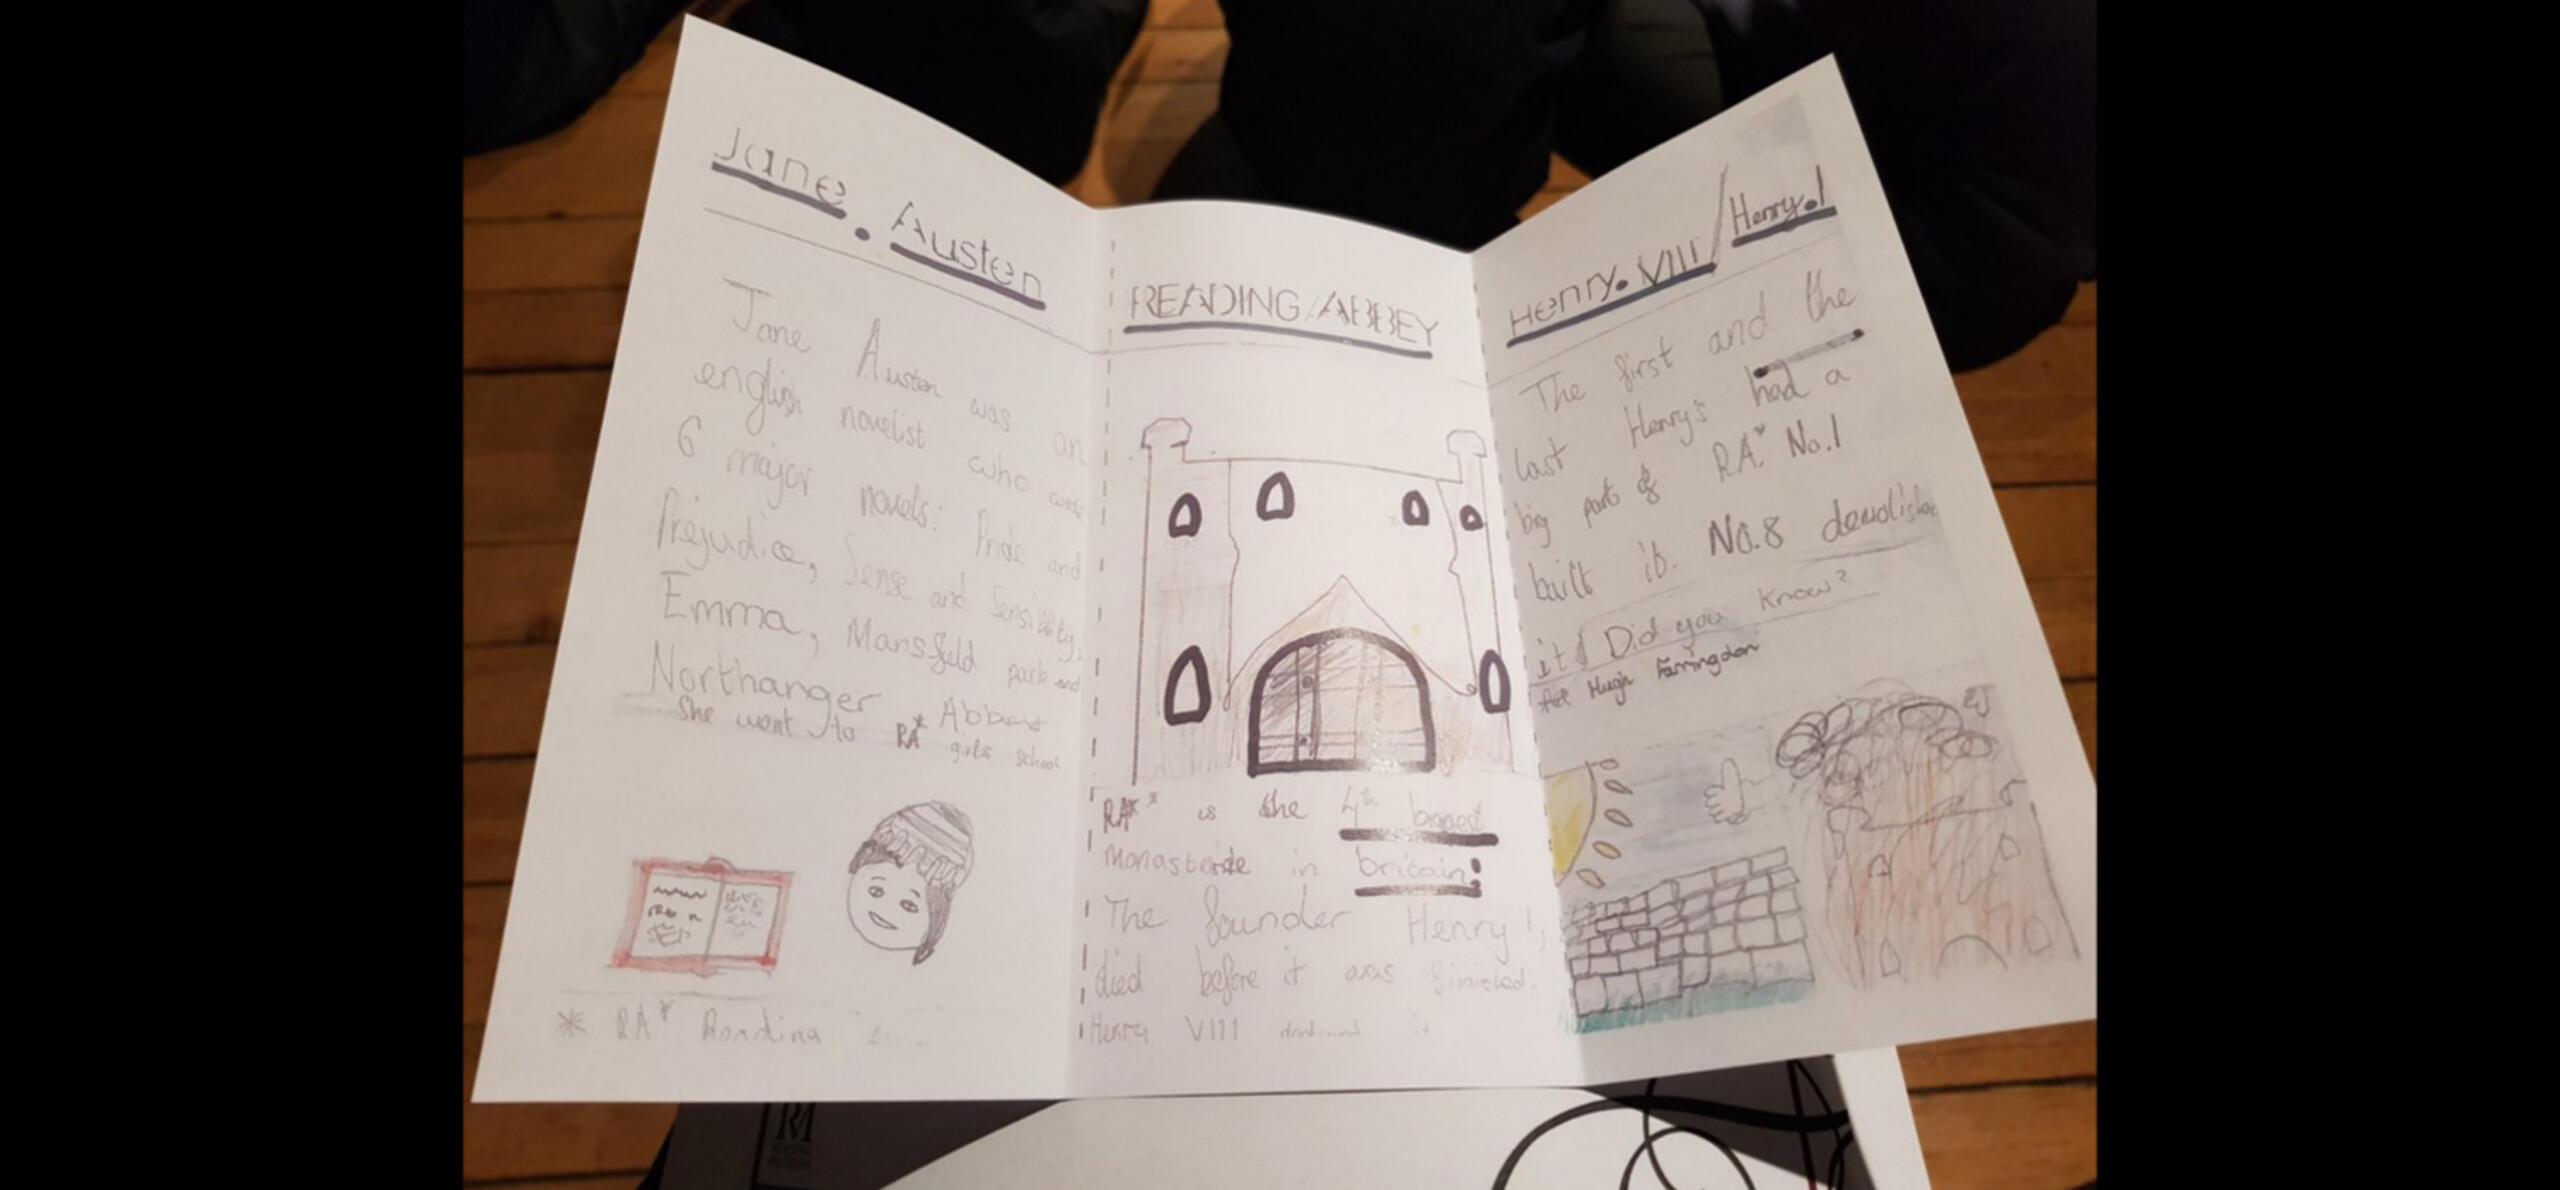 Jane. Austen
Jane Austen was an
english novelist who wrote
6 major novels: Pride and
Prejudice, Sense and Sensibility,
Emma, Mansfield park and
Northanger Abbey
She went to RA* girls school
* RA* Reading
READING ABBEY
RA* * is the 4th biggest
in britain:
The founder Henry 1,
died before it was finished.
Henry VIII it
Henry. VIII / Henry. 1
The first and the
last Henry's had a
big part of RA.* No.1
built it. No.8 demolished
it Did you know?
Hugh Farringdon
RM
READING
MUSEUM